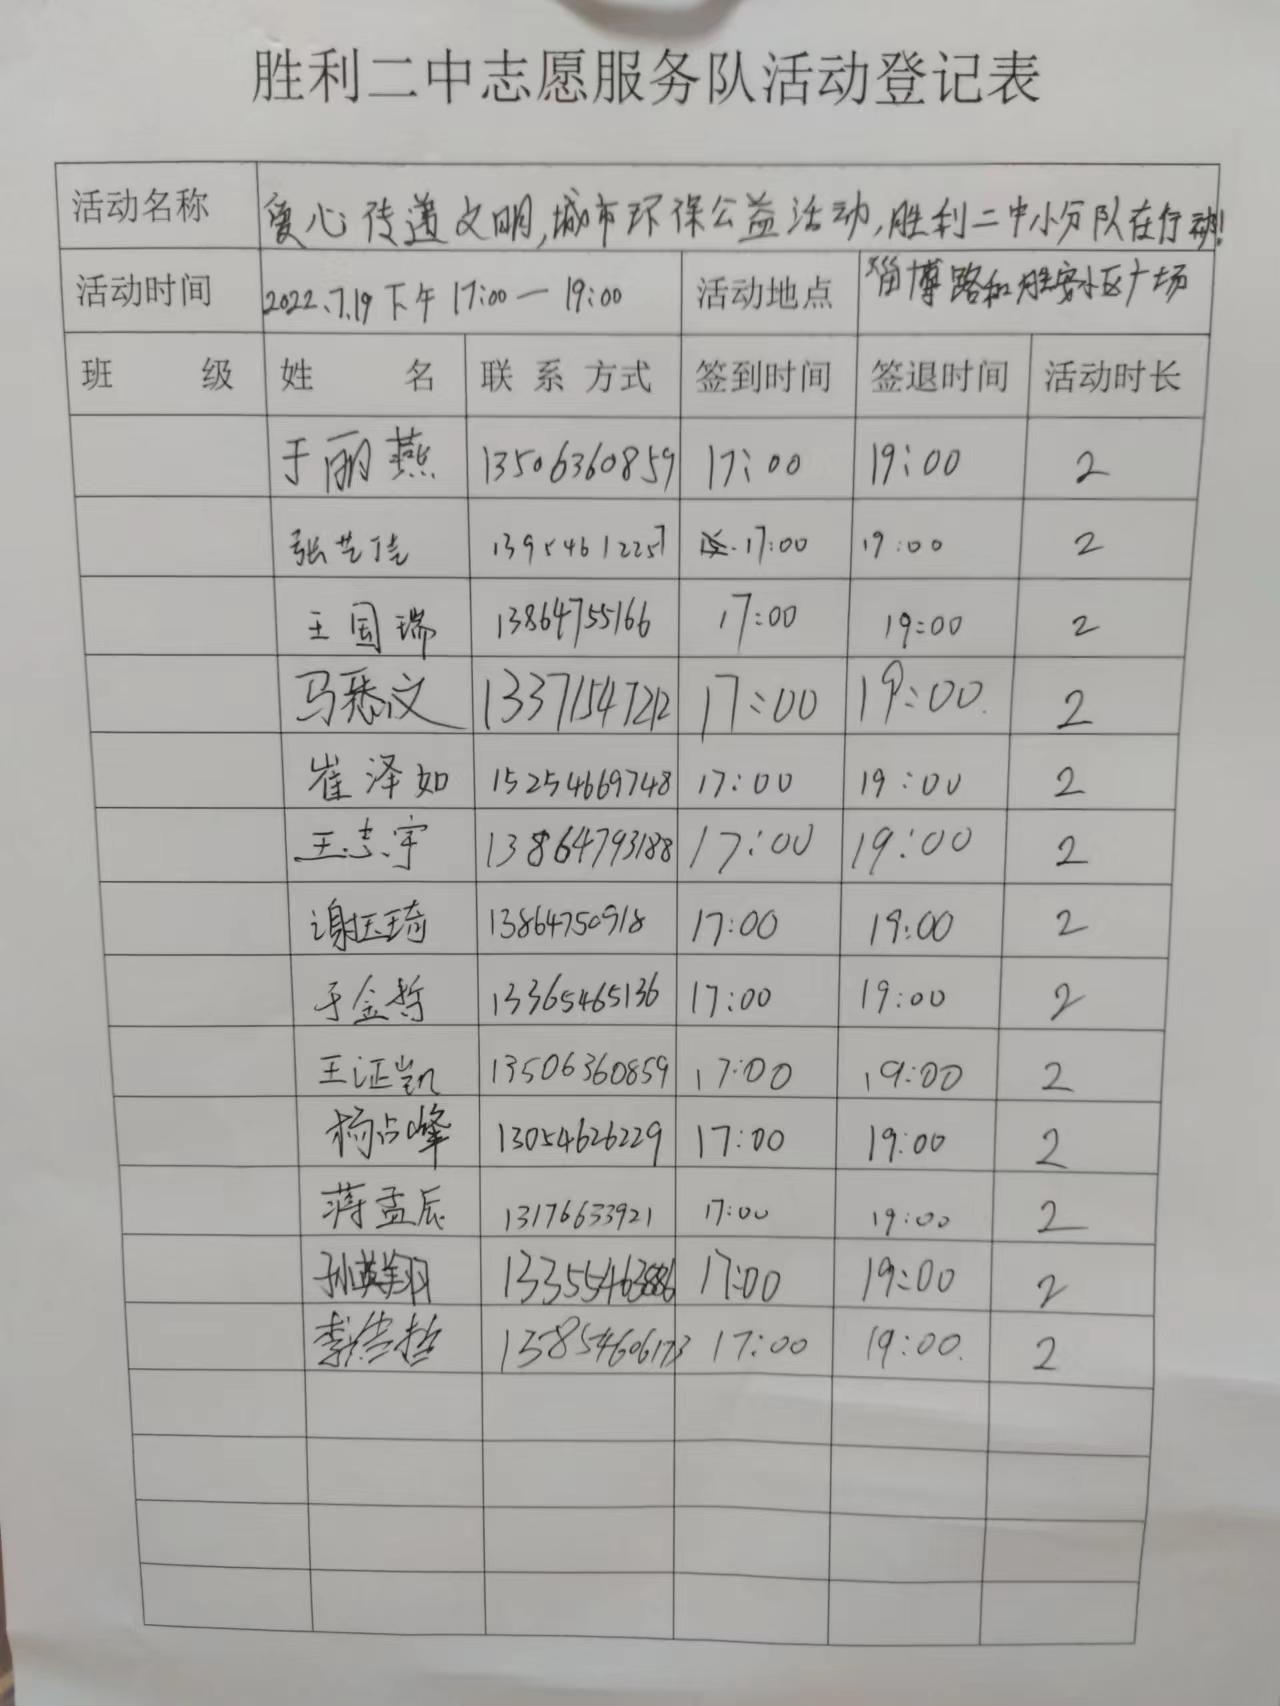 胜利二中志愿服务队活动登记表
活动名称 爱心传递文明,城市环保公益活动,胜利二中小分队在行动!
活动时间 2022.7.19下午17:00—19:00 活动地点 淄博路和胜安小区广场
班 级 姓 名 联系方式 签到时间 签退时间 活动时长
于丽燕 13506360859 17:00 19:00 2
张艺佳 13954612257 17:00 19:00 2
王国瑞 13864755166 17:00 19:00 2
马悉文 13371547212 17:00 19:00 2
崔泽如 15254669748 17:00 19:00 2
王志宇 13864793188 17:00 19:00 2
谢玉琦 13864750918 17:00 19:00 2
于金哲 13365465136 17:00 19:00 2
王证凯 13506360859 17:00 19:00 2
杨占峰 13054626229 17:00 19:00 2
蒋孟辰 13176633921 17:00 19:00 2
孙英翔 13355463886 17:00 19:00 2
李浩哲 13854606173 17:00 19:00 2